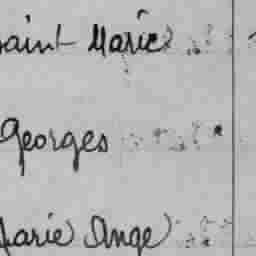 saint Marie
Georges
Marie Ange